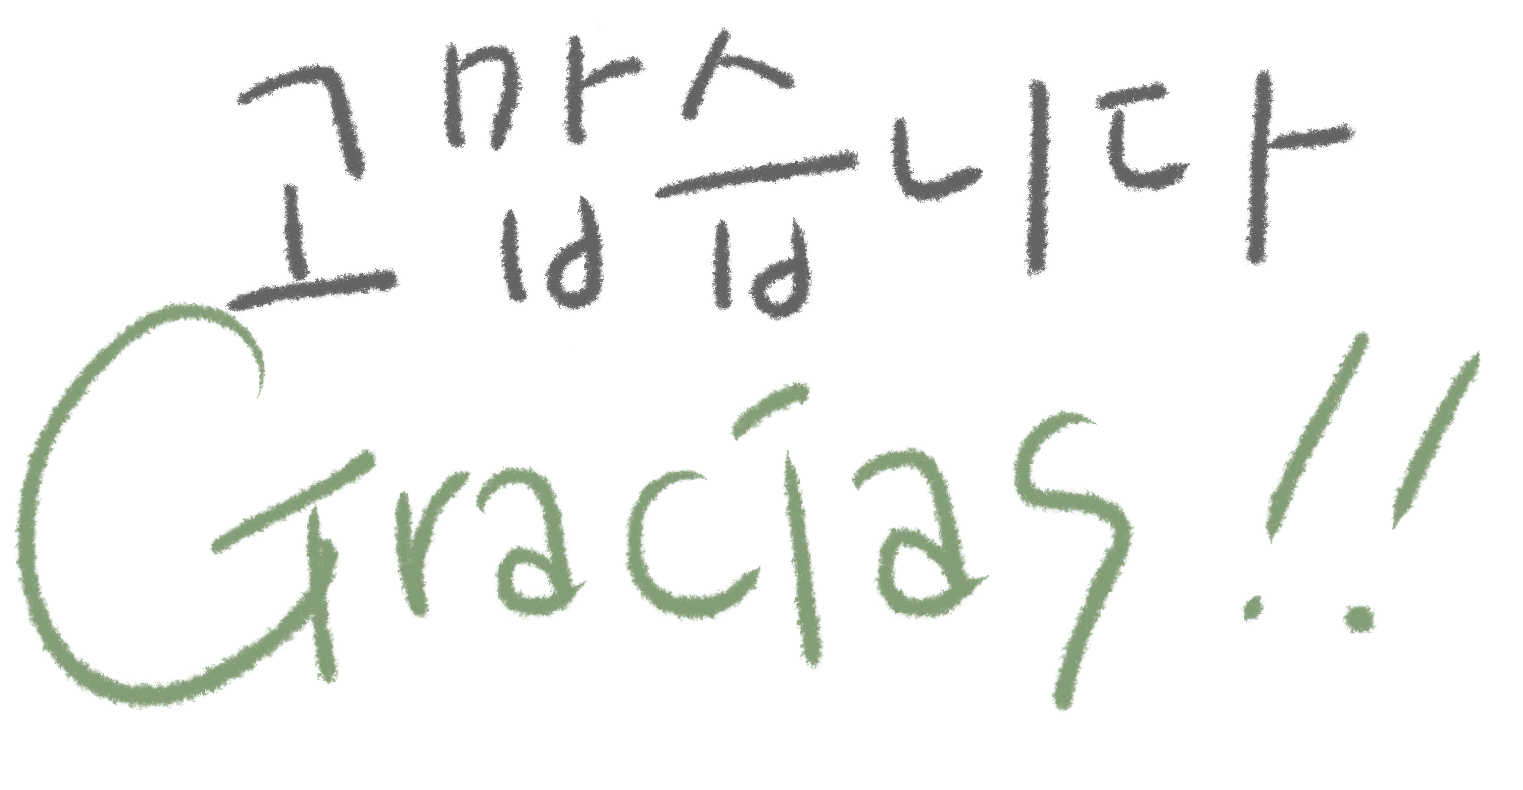 고맙습니다
Gracias!!